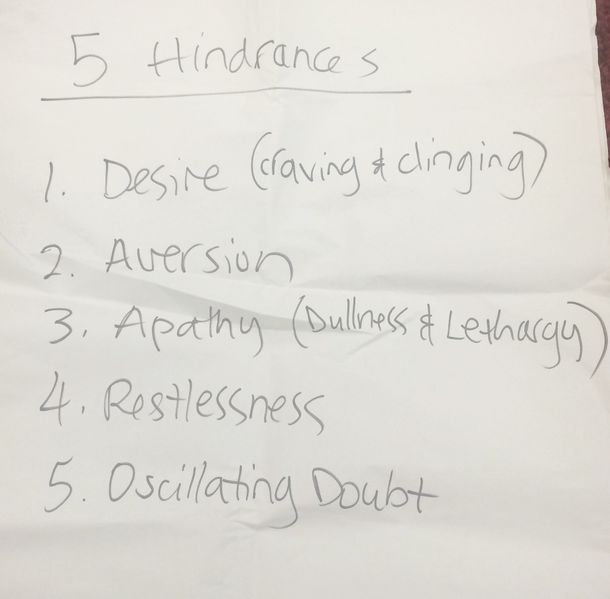 5 Hindrances
1. Desire (craving & clinging)
2. Aversion
3. Apathy (Dullness & Lethargy)
4. Restlessness
5. Oscillating Doubt